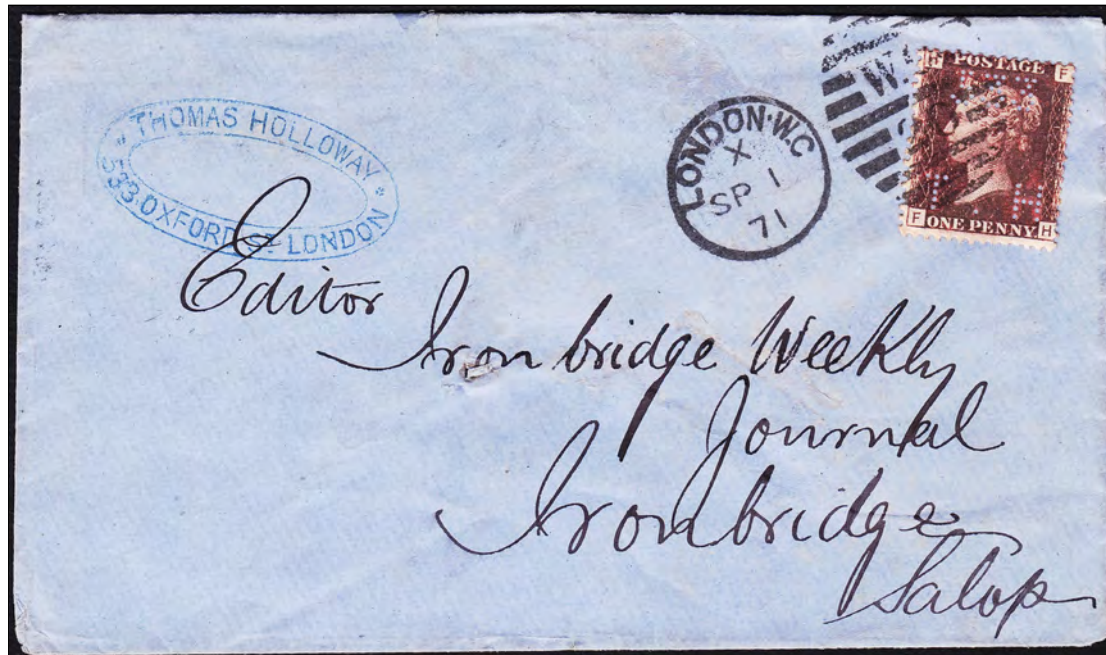 THOMAS HOLLOWAY
533.OXFORD ST. LONDON
LONDON·W.C
X
SP 1
71
W.C
H POSTAGE F
F ONE PENNY H
Editor
Iron bridge Weekly
Journal
Ironbridge
Salop